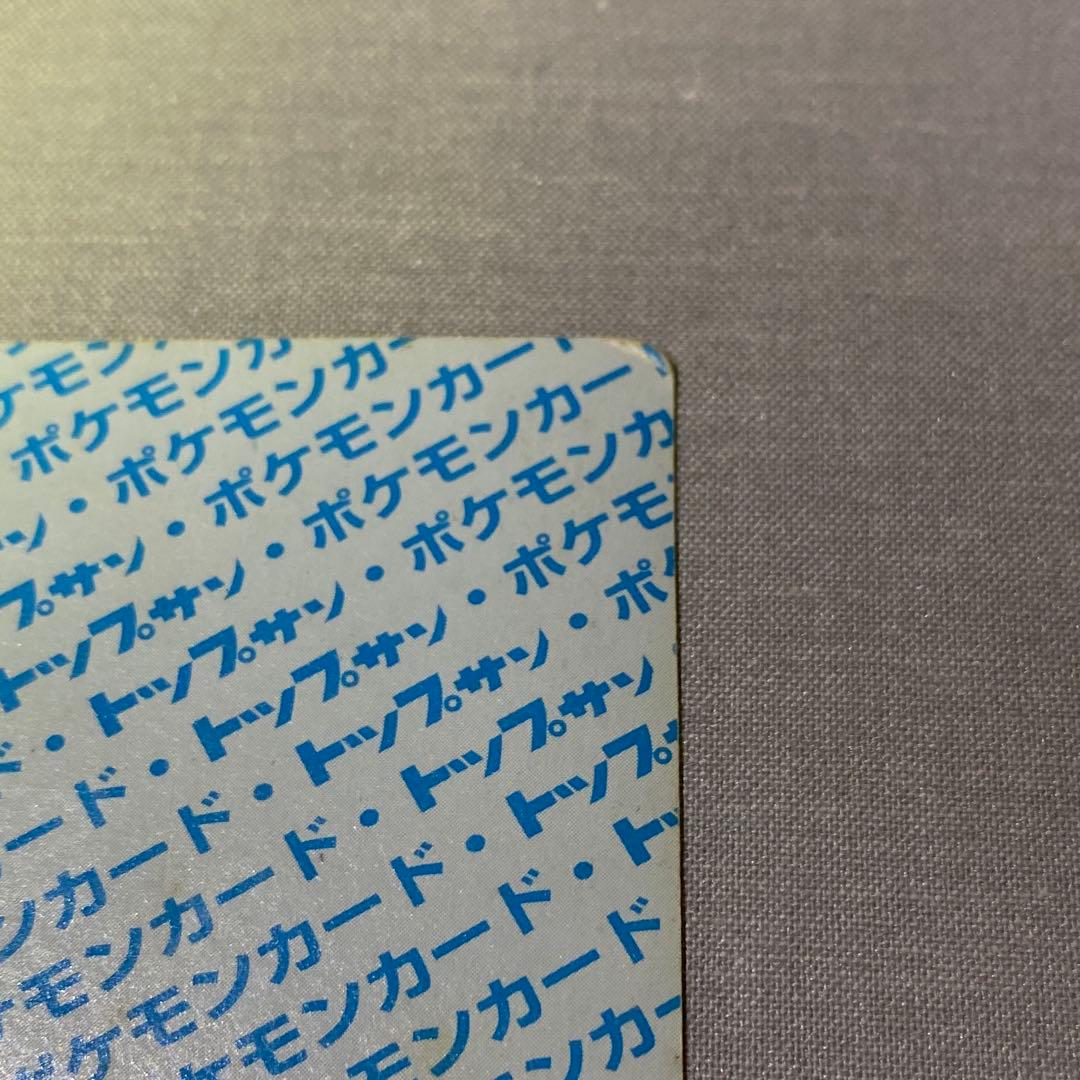 ケモン
ポケモンカ
ン・ポケモンカー
プサン・ポケモンカー
トップサン・ポケモンカー
・トップサン・ポケモンカ
ード・トップサン・ポケモ
ンカード・トップサン・ポ
ケモンカード・トップサン・
ポケモンカード・トップ
ケモンカード・ト
モンカード
ンカー